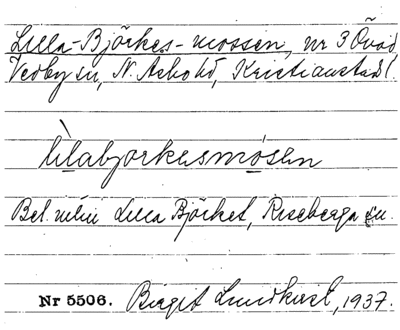 Lilla-Björkes-mossen, nr 3 Övad
Vedby sn, N. Åsbo hd, Kristianstads l.
lìlabjorkesmósen
Bel. intill Lilla Björket, Riseberga sn.
Nr 5506. Birgit Lundkvist, 1937.